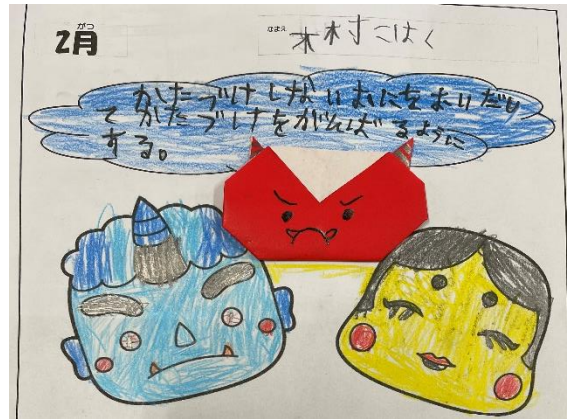 がつ
2月
なまえ 木村こはく
かたづけしないおにをおいだし
てかたづけをがんばるように
する。